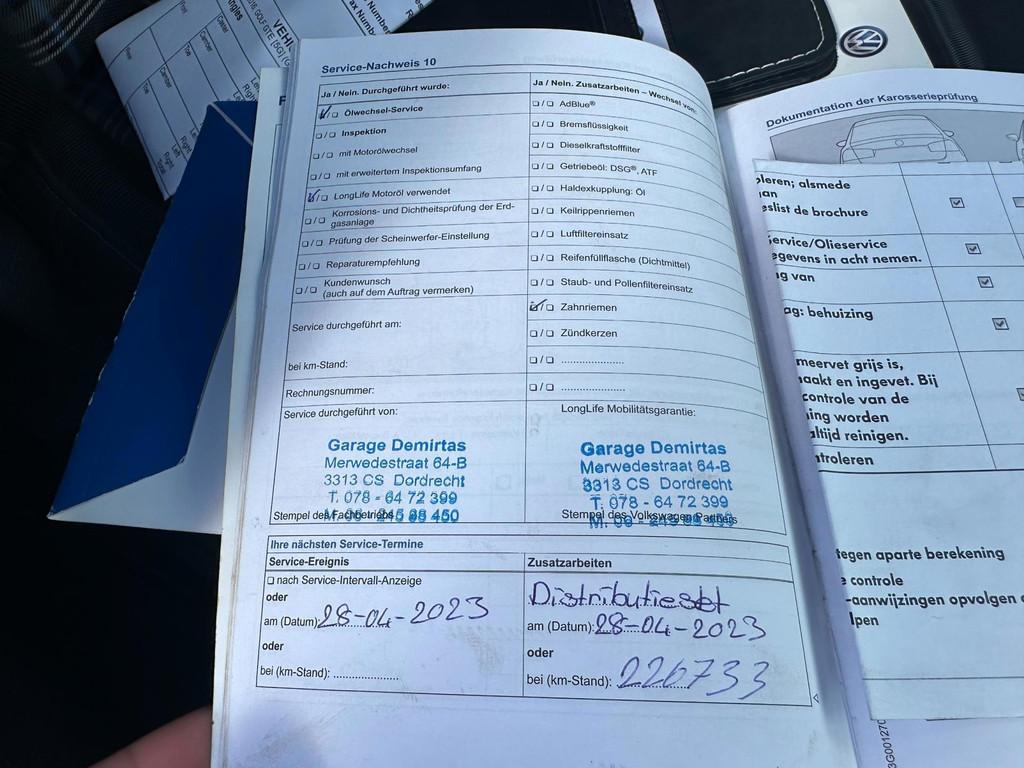 Service-Nachweis 10
Ja / Nein. Durchgeführt wurde:
Ölwechsel-Service
Inspektion
mit Motorölwechsel
mit erweitertem Inspektionsumfang
LongLife Motoröl verwendet
Korrosions- und Dichtheitsprüfung der Erd-
gasanlage
Prüfung der Scheinwerfer-Einstellung
Reparaturempfehlung
Kundenwunsch
(auch auf dem Auftrag vermerken)
Service durchgeführt am:
bei km-Stand:
Rechnungsnummer:
Service durchgeführt von:
Garage Demirtas
Merwedestraat 64-B
3313 CS Dordrecht
T. 078 - 64 72 399
Stempel des Fachbetriebs
Ja / Nein. Zusatzarbeiten – Wechsel von:
AdBlue®
Bremsflüssigkeit
Dieselkraftstofffilter
Getriebeöl: DSG®, ATF
Haldexkupplung: Öl
Keilrippenriemen
Luftfiltereinsatz
Reifenfüllflasche (Dichtmittel)
Staub- und Pollenfiltereinsatz
Zahnriemen
Zündkerzen
LongLife Mobilitätsgarantie:
Garage Demirtas
Merwedestraat 64-B
3313 CS Dordrecht
T. 078 - 64 72 399
Stempel des Volkswagen Partners
Ihre nächsten Service-Termine
Service-Ereignis
nach Service-Intervall-Anzeige
oder
am (Datum): 28-04-2023
oder
bei (km-Stand):
Zusatzarbeiten
Distributieset
am (Datum): 28-04-2023
oder
bei (km-Stand): 226733
Dokumentation der Karosserieprüfung
oleren; alsmede
eslist de brochure
ervice/Olieservice
egevens in acht nemen.
g van
ag: behuizing
meervet grijs is,
aakt en ingevet. Bij
controle van de
ing worden
altijd reinigen.
troleren
tegen aparte berekening
controle
-aanwijzingen opvolgen
lpen